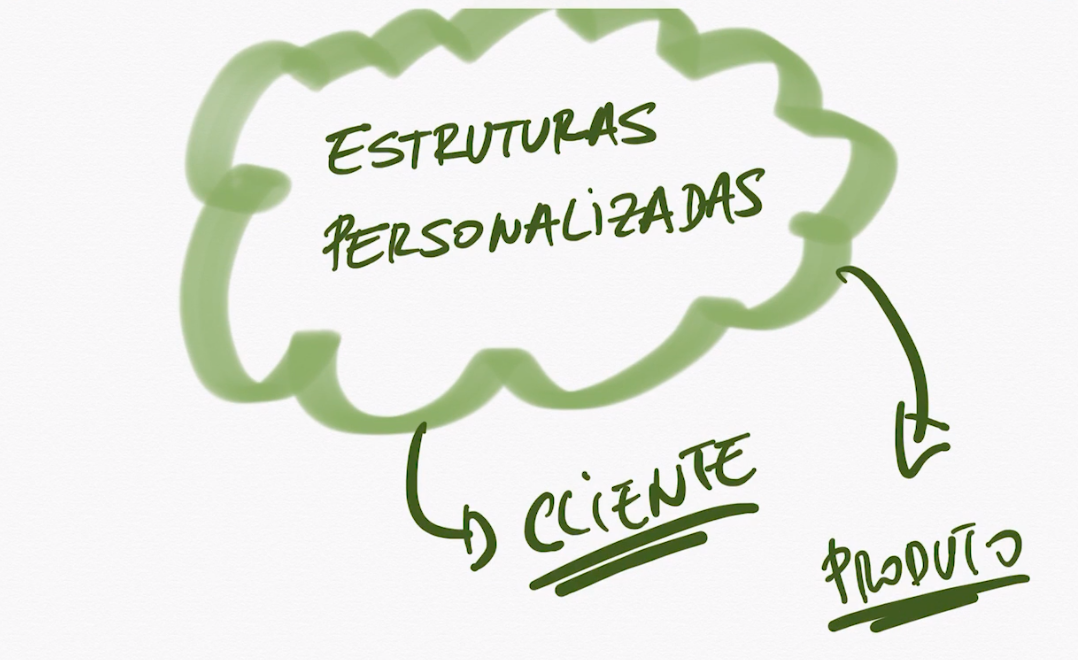 ESTRUTURAS
PERSONALIZADAS
CLIENTE
PRODUTO